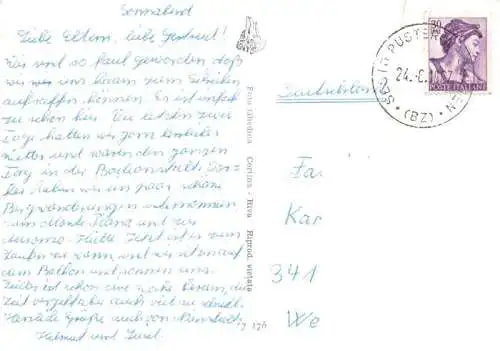 Sonnabend
Liebe Eltern, liebe Gertrud!
Wir sind so faul geworden, daß
wir uns kaum zum Schreiben
aufraffen können. Es ist einfach
zu schön hier. Die letzten zwei
Tage hatten wir
wetter und waren den ganzen
Tag in der Badeanstalt.
haben wir ein paar schöne
Bergwanderungen unternommen
zum Monte Piana und zur
Auronzo-Hütte. Jetzt ist es zum
Laufen zu warm und wir sitzen auf
dem Balkon und sonnen uns.
ist schon eine Woche herum, die
Zeit vergeht aber auch viel zu schnell.
Herzliche Grüße auch von
Helmut und
Foto Ghedina Cortina - Riva Riprod. vietata
7 176
Deutschland
30
POSTE ITALIANE
PUSTER
24.
(BZ)
Fa
Kar
341
We